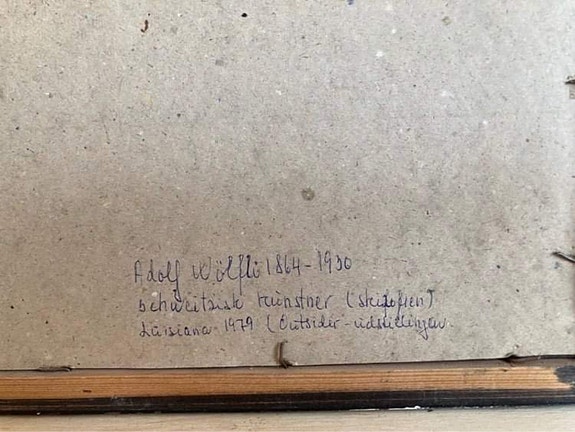 Adolf Wölfli 1864-1930
Schweitsisk kunstner (skizofren)
Luisiana 1979 (Outsider-udstillingen